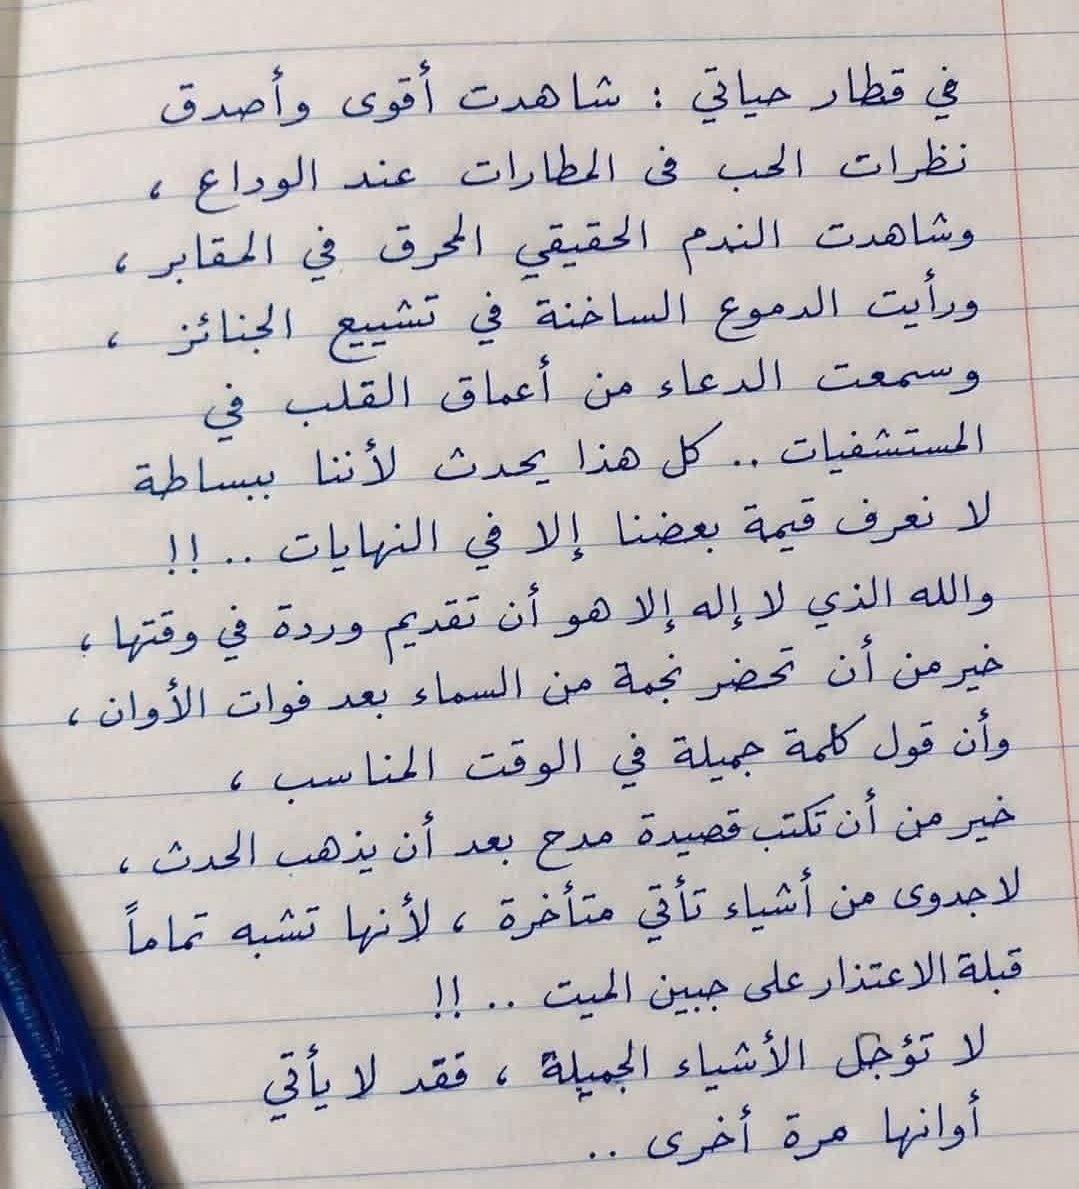 في قطار حياتي : شاهدت أقوى وأصدق
نظرات الحب فى المطارات عند الوداع ،
وشاهدت الندم الحقيقي المحرق في المقابر ،
ورأيت الدموع الساخنة في تشييع الجنائز ،
وسمعت الدعاء من أعماق القلب في
المستشفيات .. كل هذا يحدث لأننا ببساطة
لا نعرف قيمة بعضنا إلا في النهايات .. !!
والله الذي لا إله إلا هو أن تقديم وردة في وقتها ،
خير من أن تحضر نجمة من السماء بعد فوات الأوان ،
وأن قول كلمة جميلة في الوقت المناسب ،
خير من أن تكتب قصيدة مدح بعد أن يذهب الحدث ،
لا جدوى من أشياء تأتي متأخرة ، لأنها تشبه تماماً
قبلة الاعتذار على جبين الميت .. !!
لا تؤجل الأشياء الجميلة ، فقد لا يأتي
أوانها مرة أخرى ..